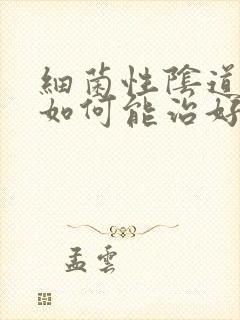 細菌性陰道
如何能治好
孟雲